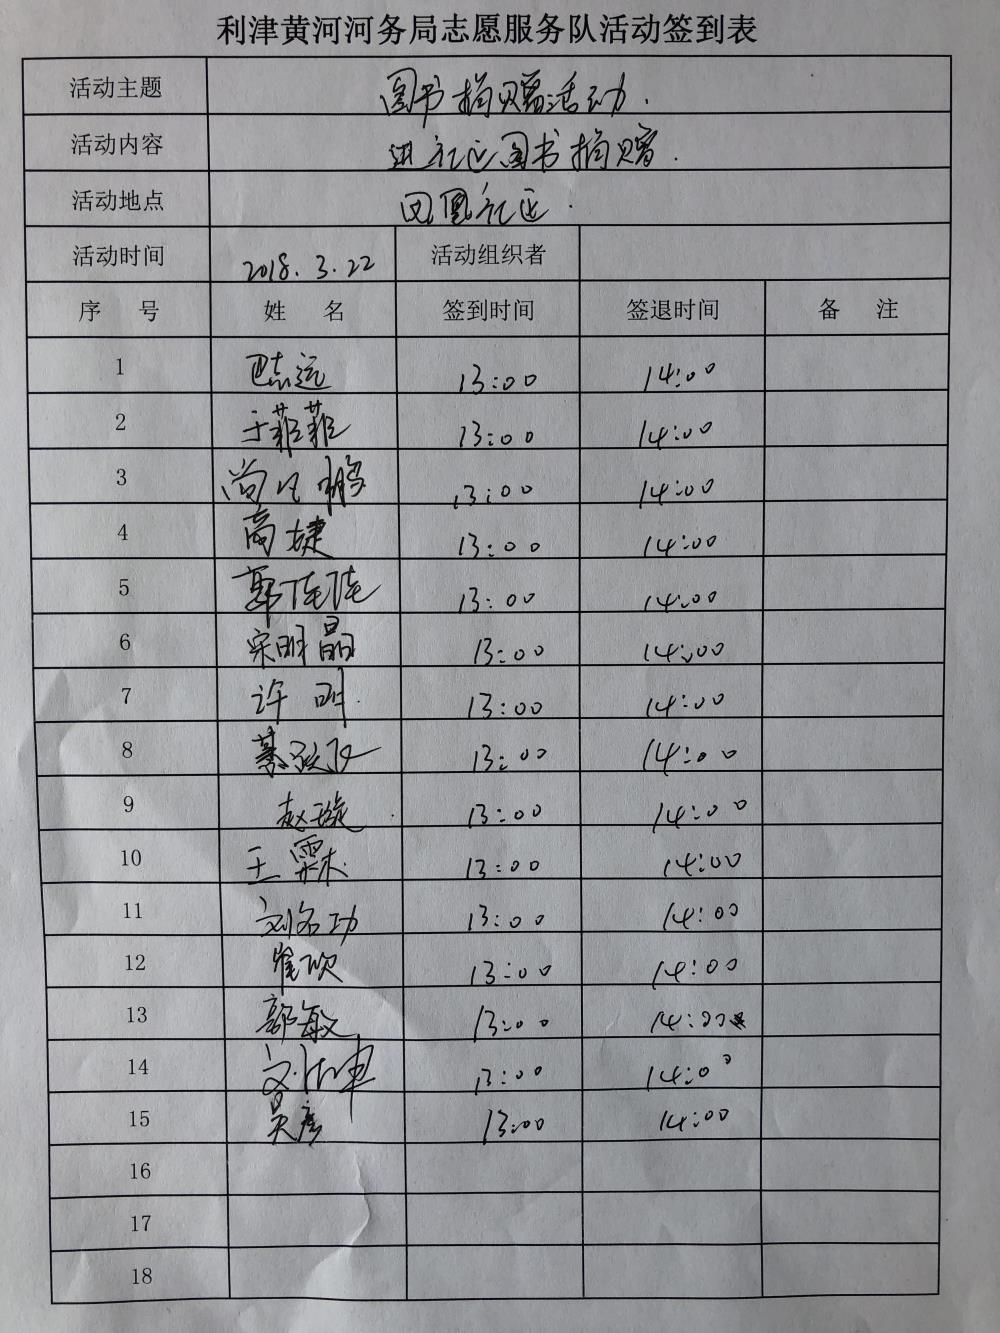 利津黄河河务局志愿服务队活动签到表
活动主题 图书捐赠活动.
活动内容 进社区图书捐赠.
活动地点 凤凰社区.
活动时间 2018.3.22 活动组织者
序 号 姓 名 签到时间 签退时间 备 注
1 巴志远 13:00 14:00
2 于菲菲 13:00 14:00
3 尚 鹏 13:00 14:00
4 高婕 13:00 14:00
5 郭佳佳 13:00 14:00
6 宋明晶 13:00 14:00
7 许明 13:00 14:00
8 13:00 14:00
9 赵璇 13:00 14:00
10 王霖 13:00 14:00
11 刘名功 13:00 14:00
12 崔欣 13:00 14:00
13 郭敏 13:00 14:00
14 13:00 14:00
15 吴彦 13:00 14:00
16
17
18